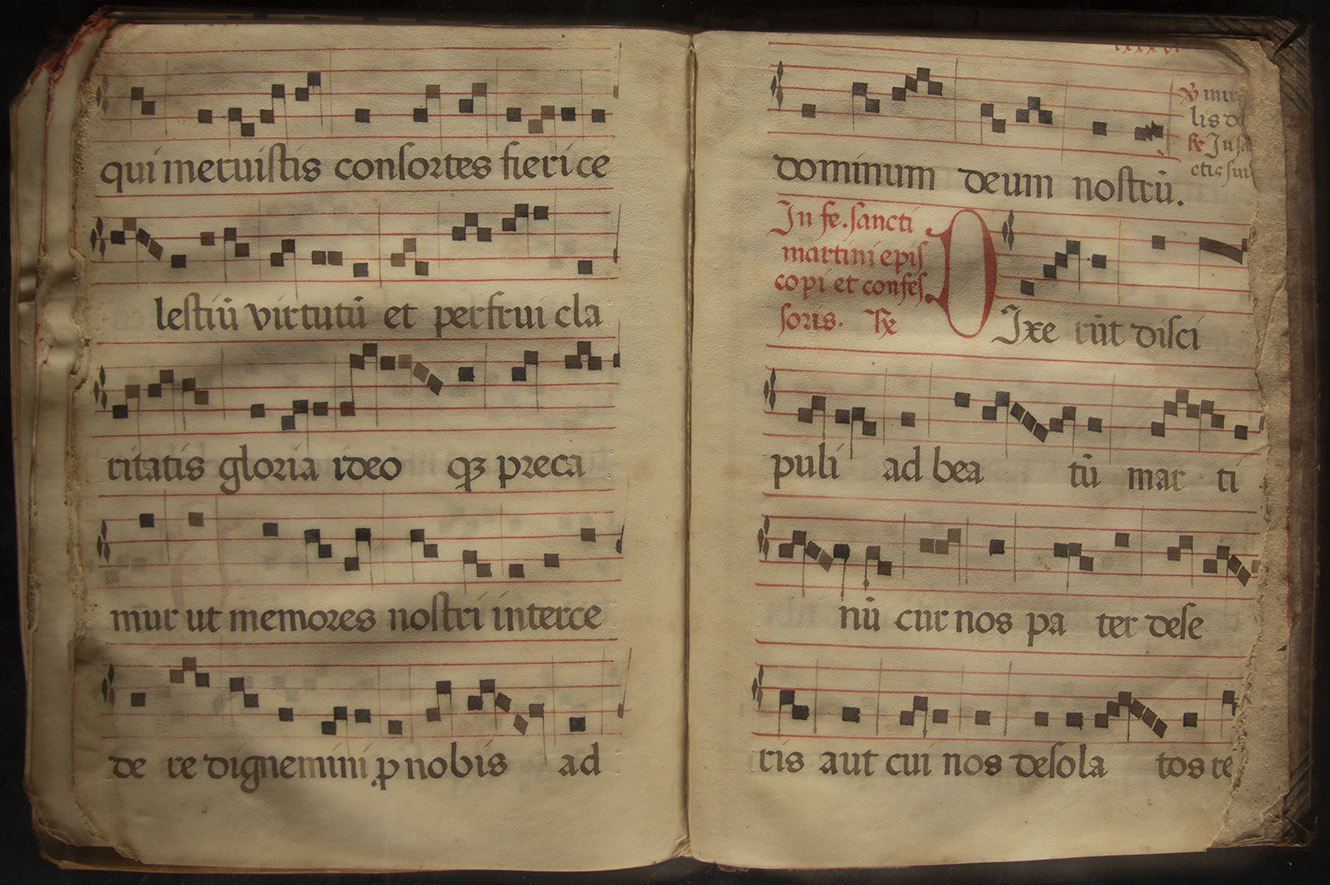 qui meruistis consortes fieri ce
lestiū virtutū et perfrui cla
ritatis gloria ideo qꝫ preca
mur ut memores nostri interce
de re dignemini ꝓ nobis ad
dominum deum nostrū.
lis
In fe. sancti
martini epis
copi et confes
soris. ℟
DIxe rūt disci
puli ad bea tū mar ti
nū cur nos pa ter dese
ris aut cui nos desola tos re